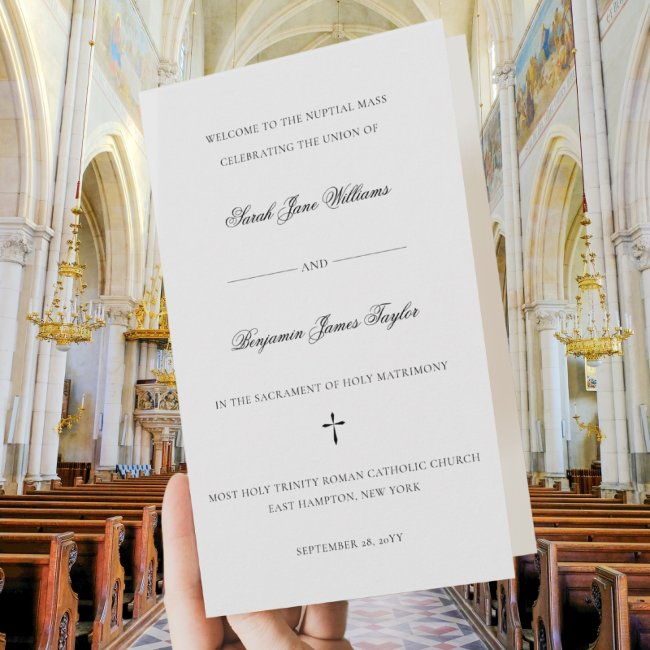 WELCOME TO THE NUPTIAL MASS
CELEBRATING THE UNION OF
Sarah Jane Williams
AND
Benjamin James Taylor
IN THE SACRAMENT OF HOLY MATRIMONY
MOST HOLY TRINITY ROMAN CATHOLIC CHURCH
EAST HAMPTON, NEW YORK
SEPTEMBER 28, 20YY